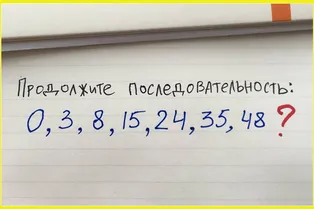 Продолжите последовательность:
0, 3, 8, 15, 24, 35, 48 ?